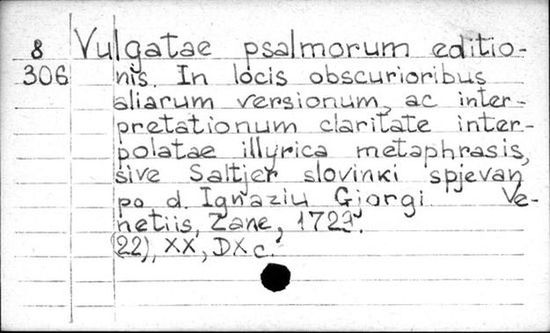 8 Vulgatae psalmorum editio-
306 nis. In locis obscurioribus
aliarum versionum, ac inter-
pretationum claritate inter-
polatae illyrica metaphrasis,
sive Saltjer slovinki spjevan
po d. Ignaziu Gjorgi Ve-
netiis, Zane, 1729.
(22), XX, DX c.